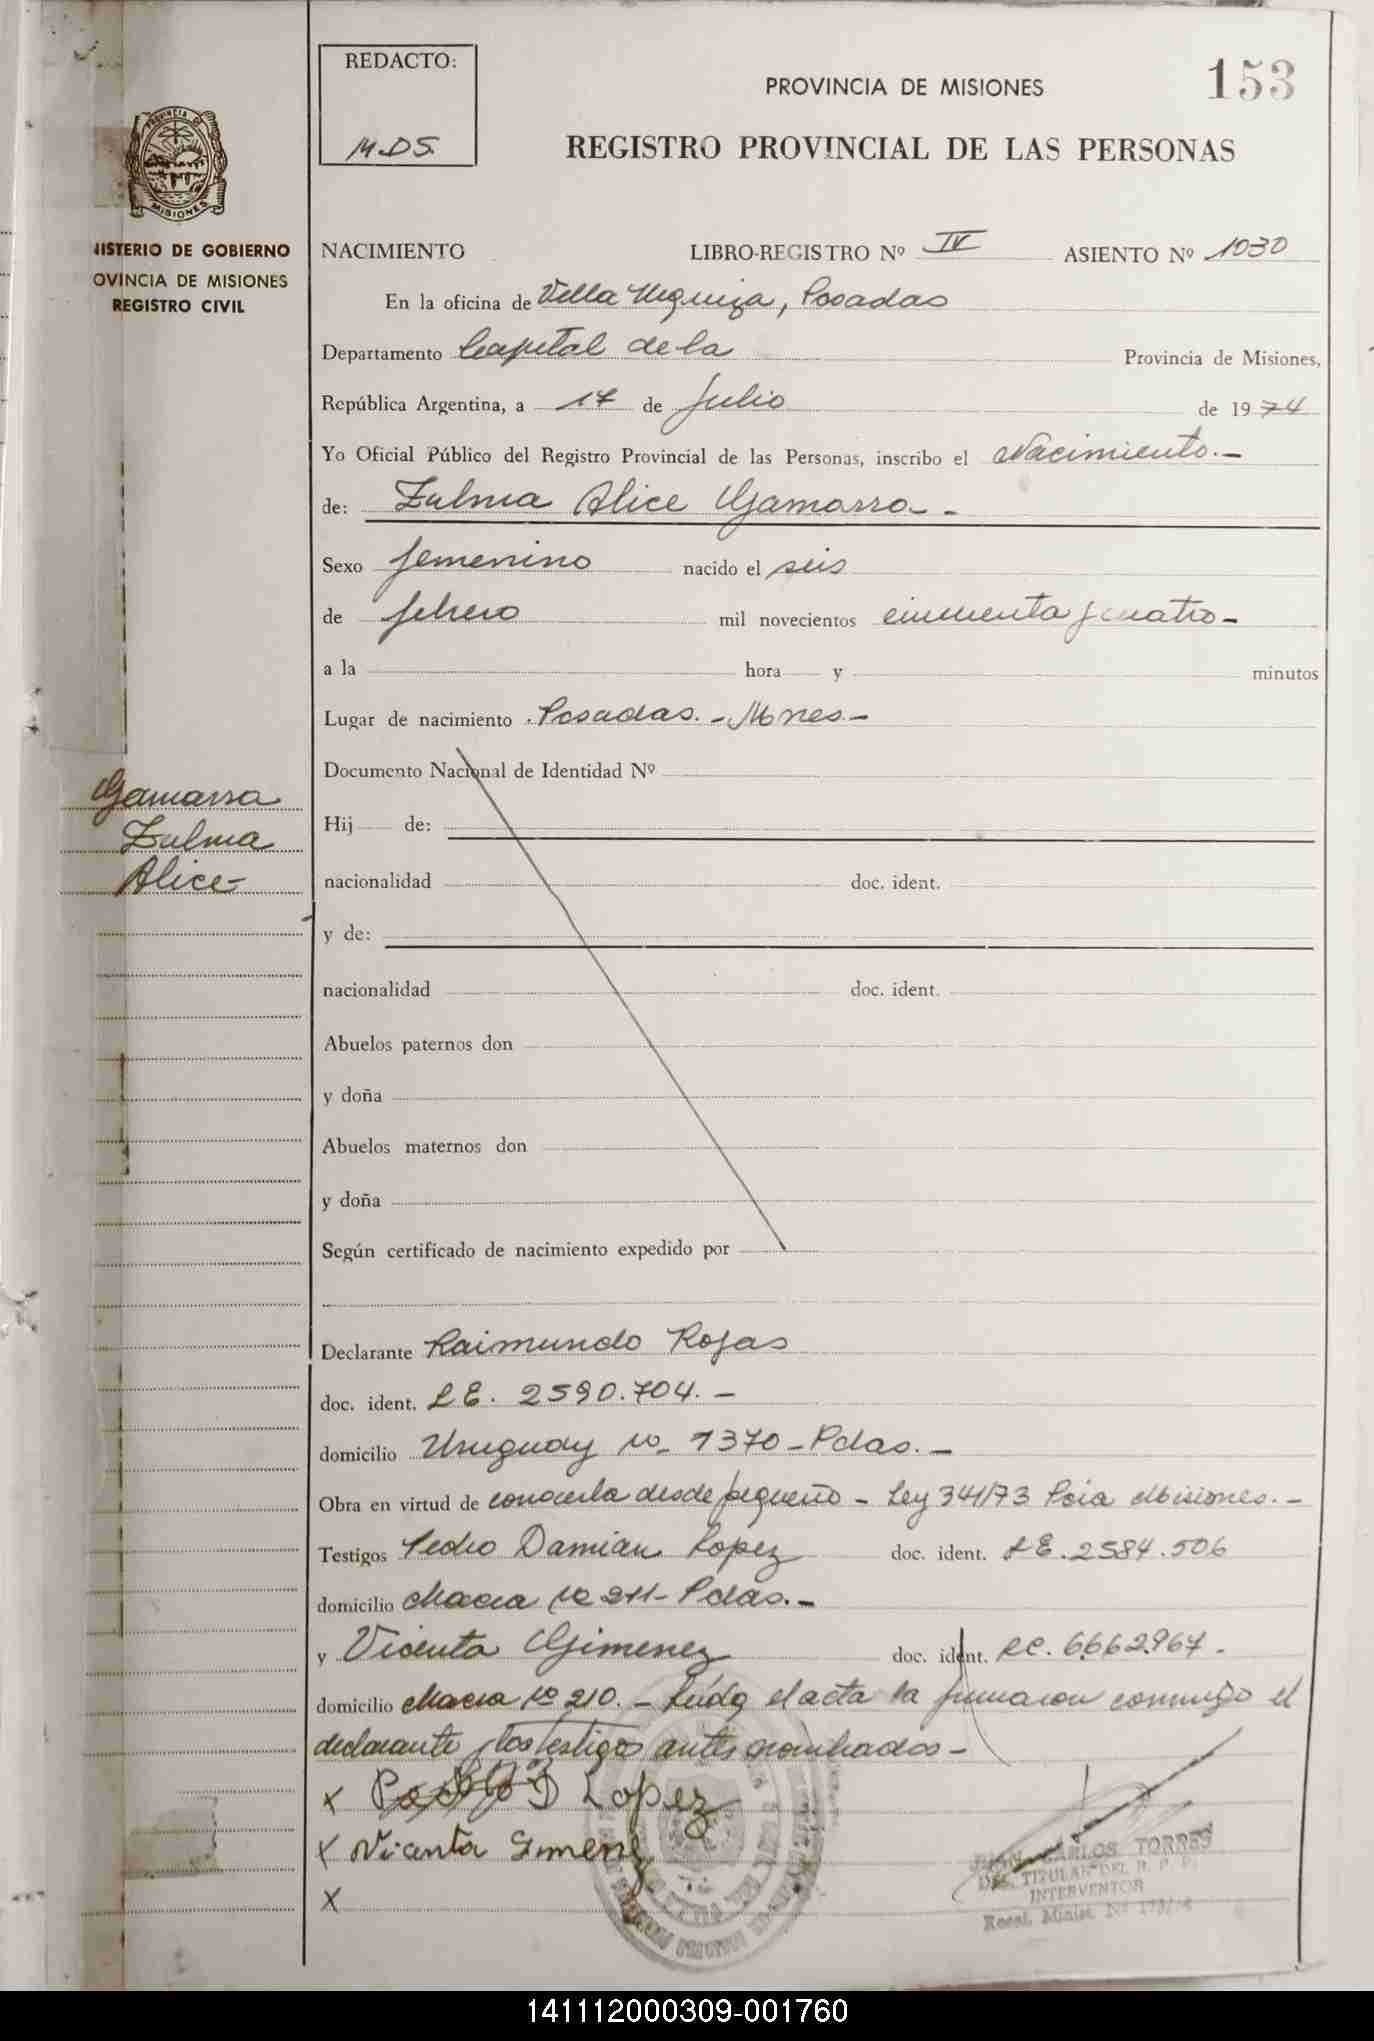 REDACTO:
M.D.S.
153
PROVINCIA DE MISIONES
REGISTRO PROVINCIAL DE LAS PERSONAS
PROVINCIA DE
MISIONES
NISTERIO DE GOBIERNO
OVINCIA DE MISIONES
REGISTRO CIVIL
NACIMIENTO LIBRO-REGISTRO Nº IV ASIENTO Nº 1030
En la oficina de Villa Urquiza, Posadas
Departamento Capital de la Provincia de Misiones,
República Argentina, a 17 de Julio de 1974
Yo Oficial Público del Registro Provincial de las Personas, inscribo el Nacimiento.-
de: Zulma Alice Gamarra.-
Sexo femenino nacido el seis
de febrero mil novecientos cincuenta y cuatro-
a la hora y minutos
Lugar de nacimiento Posadas.-Mnes-
Documento Nacional de Identidad Nº
Gamarra
Zulma
Alice-
Hij de:
nacionalidad doc. ident.
y de:
nacionalidad doc. ident.
Abuelos paternos don
y doña
Abuelos maternos don
y doña
Según certificado de nacimiento expedido por
Declarante Raimundo Rojas
doc. ident. L.E. 2590.704.-
domicilio Uruguay no 1370-Pdas.-
Obra en virtud de conocerla desde pequeño - Ley 341/73 Pcia Misiones.-
Testigos Pedro Damian Lopez doc. ident. L.E. 2584.506
domicilio nº 211-Pdas.-
y Vicenta Gimenez doc. ident. 6662967.
domicilio nº 210.- Leída el acta la firmaron conmigo el
declarante y los testigos antes nombrados-
x Pedro D Lopez
x Vicenta Gimenez
X
JUAN CARLOS TORRES
TITULAR DEL R. P. P.
INTERVENTOR
Resol. Minist. Nº
141112000309-001760